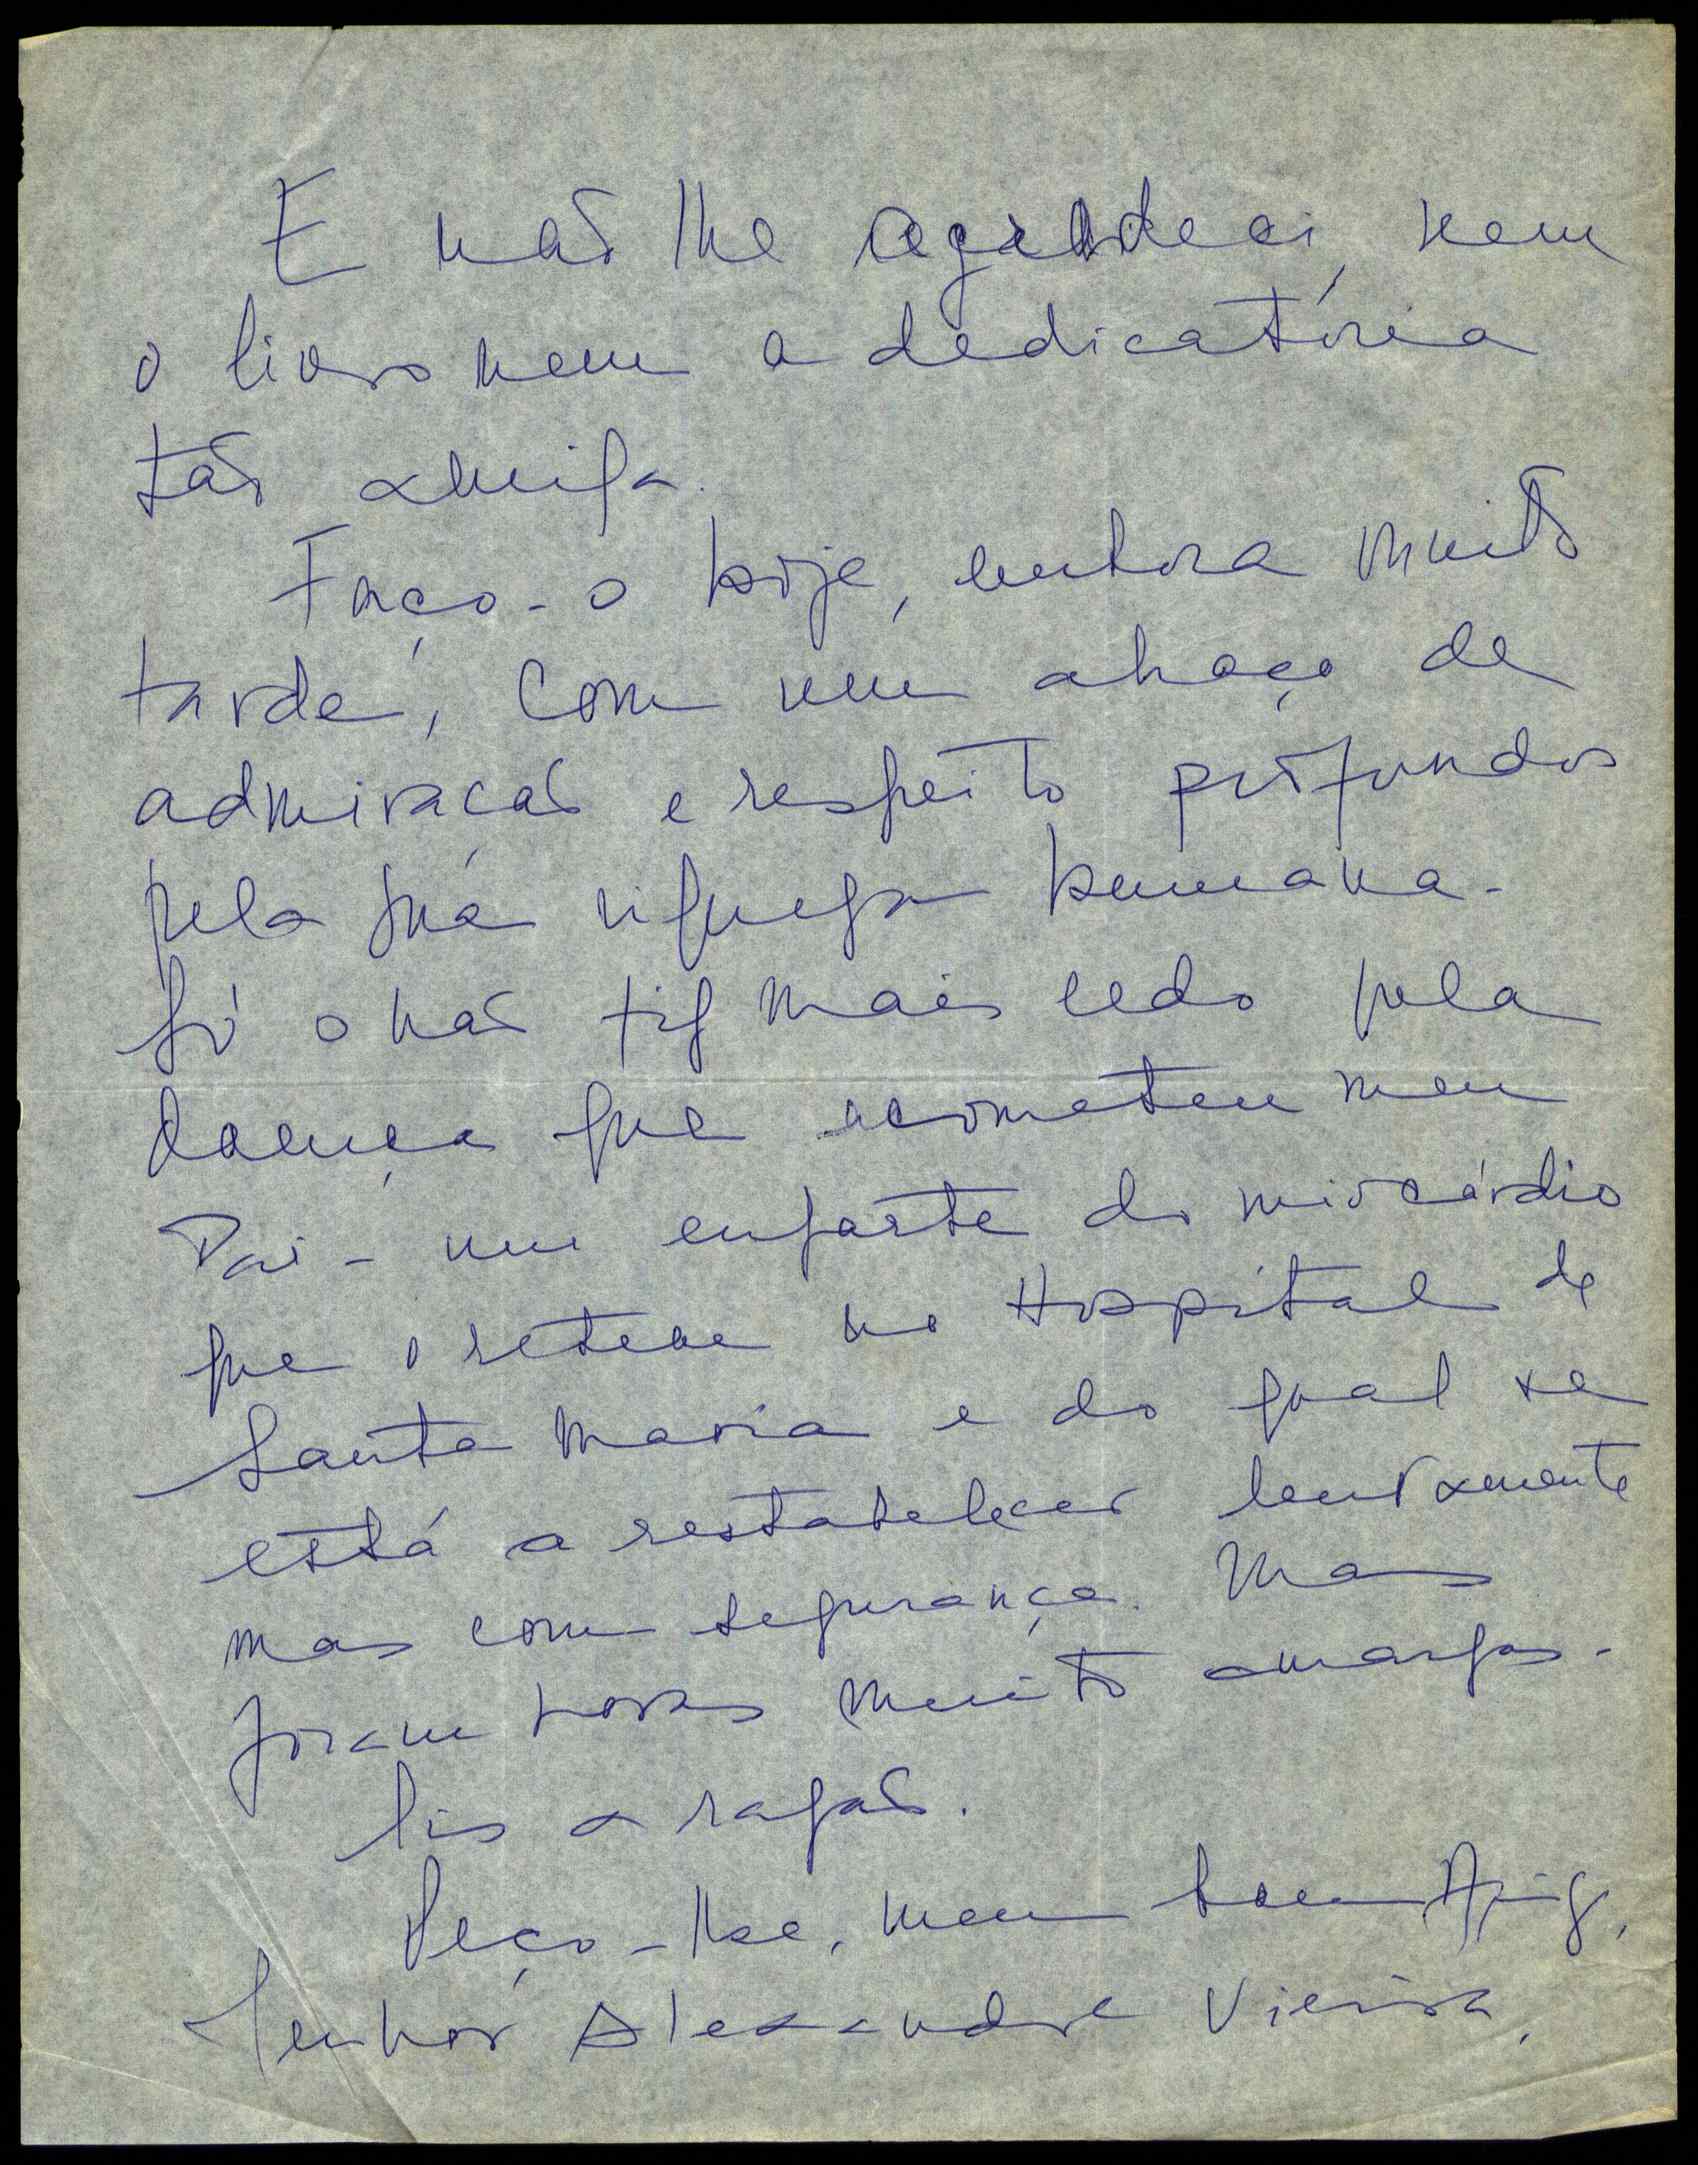 E não lhe agradeci, nem
o livro nem a dedicatória
tão amiga.
Faço-o hoje, embora muito
tarde, com um abraço de
admiração e respeito profundos
pela sua riqueza humana.
Só o não fiz mais cedo pela
doença que acometeu meu
Pai - um enfarte do miocárdio
que o reteve no Hospital de
Santa Maria e do qual se
está a restabelecer lentamente
mas com segurança. Mas
foram horas muito amargas.
Eis a razão.
Peço-lhe, meu bom Amigo,
Senhor Alexandre Vieira,